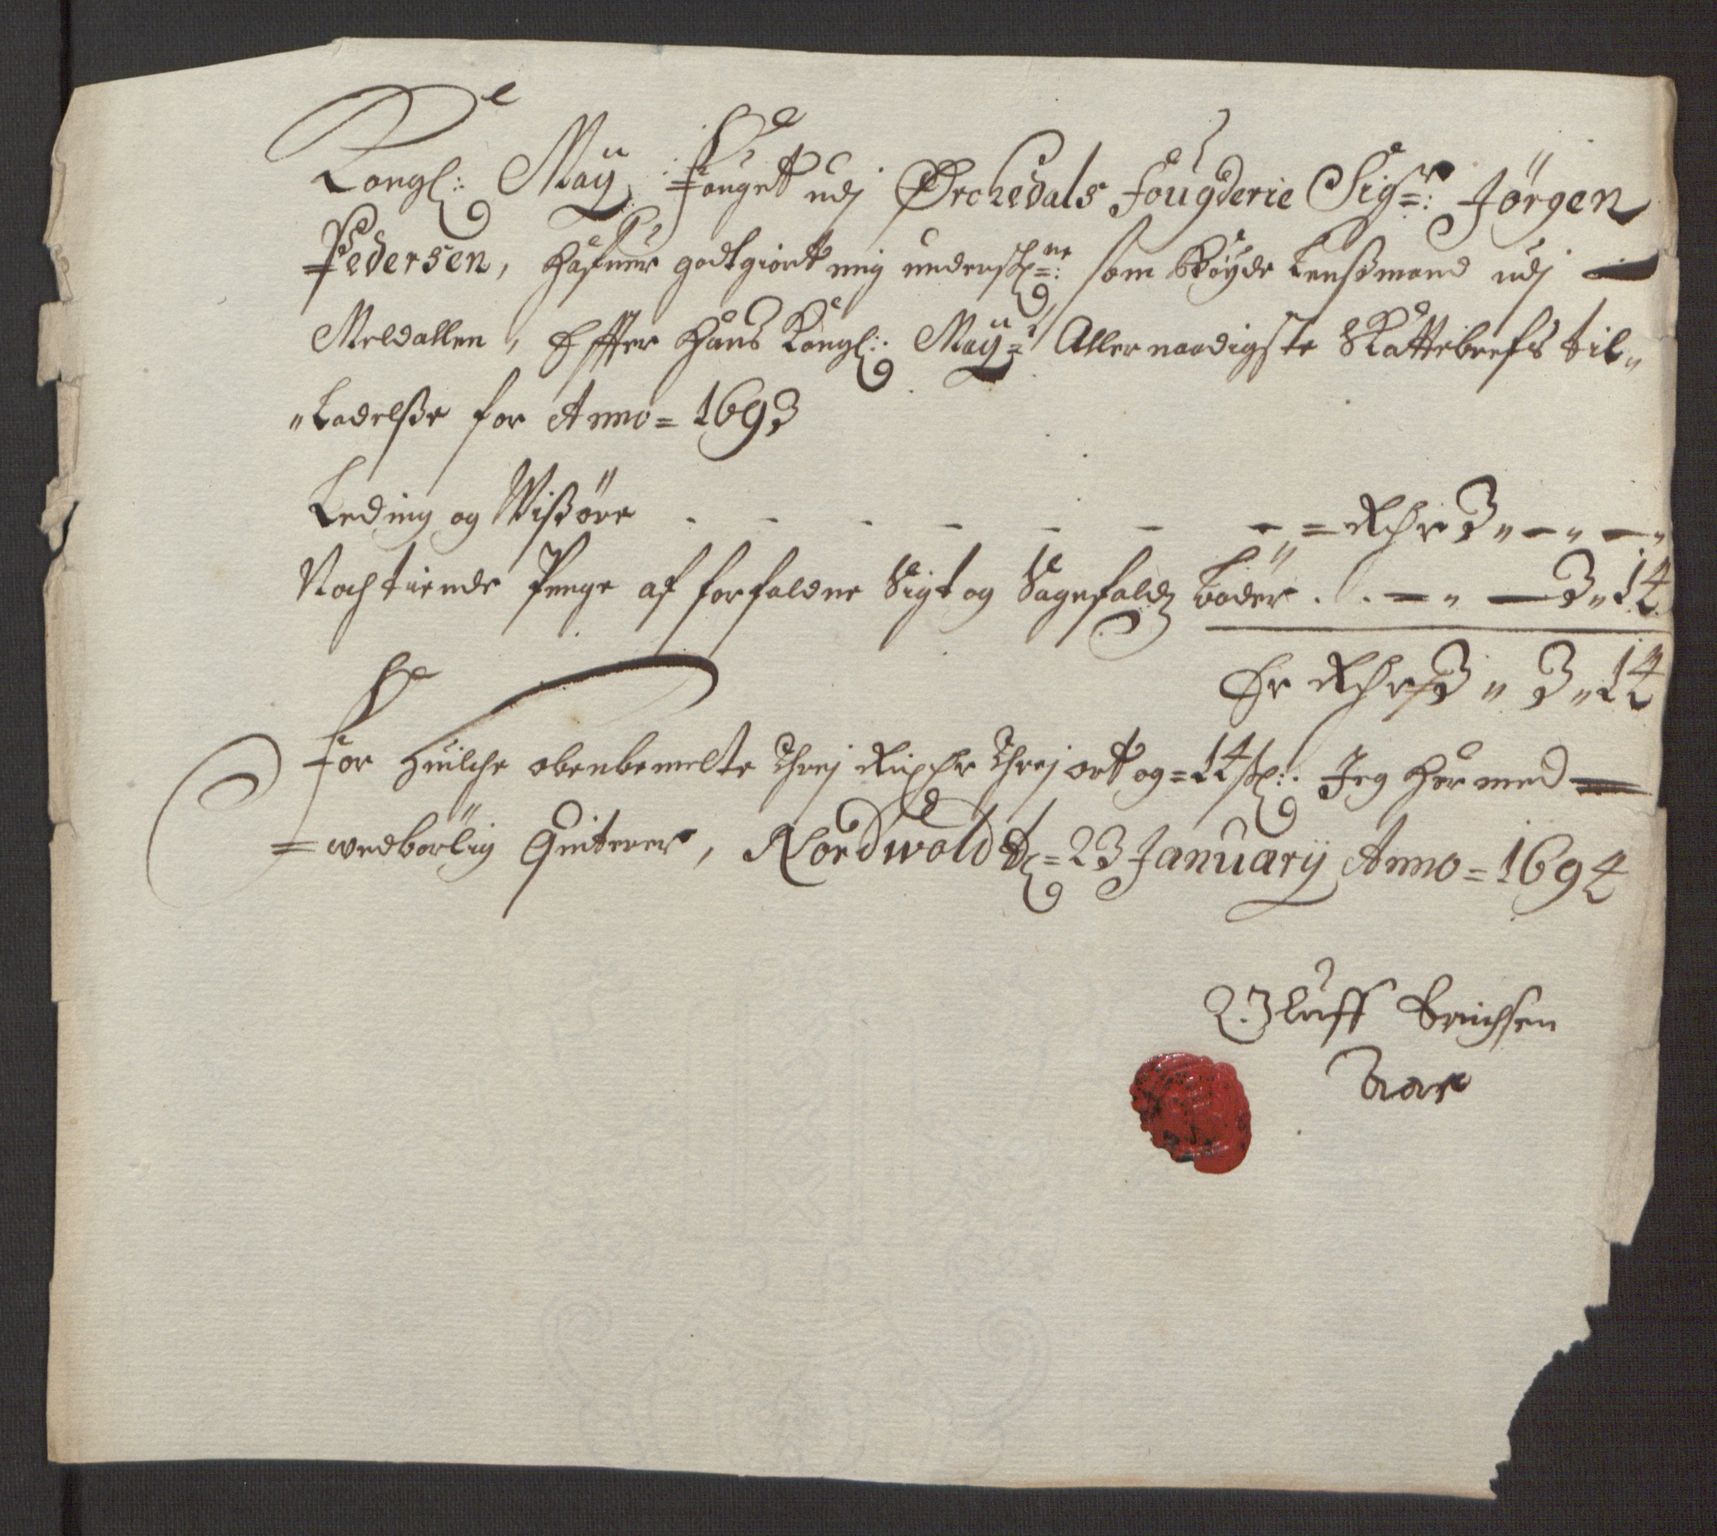 Kongl: May: Fouget udj Ørchedals fougderie Sigr: Jörgen
Pedersen, hafuer godtgiort mig underschne: som Böyde Lensmand udj
Meldallen, Effter Hans Kongl: Mayts Allernaadigste Skattebrefs til„
„Ladelsse for Anno = 1693
Leding og Wissöre - - - - - - - = Rdr 3 „ — „ — „
Noch tiende Penge af forfaldne Sigt og Sagefalds böder . . — „ — 3 „ 14
Er Rdr 3 „ 3 „ 14
For huilche obenbemelte Threj Rixdr Threj ort og = 14 sk: Jeg her med =
= wedbörlig Quiterer, Nordwold d = 23 Januarij Anno = 1694
Oluff Erichsen
Aar